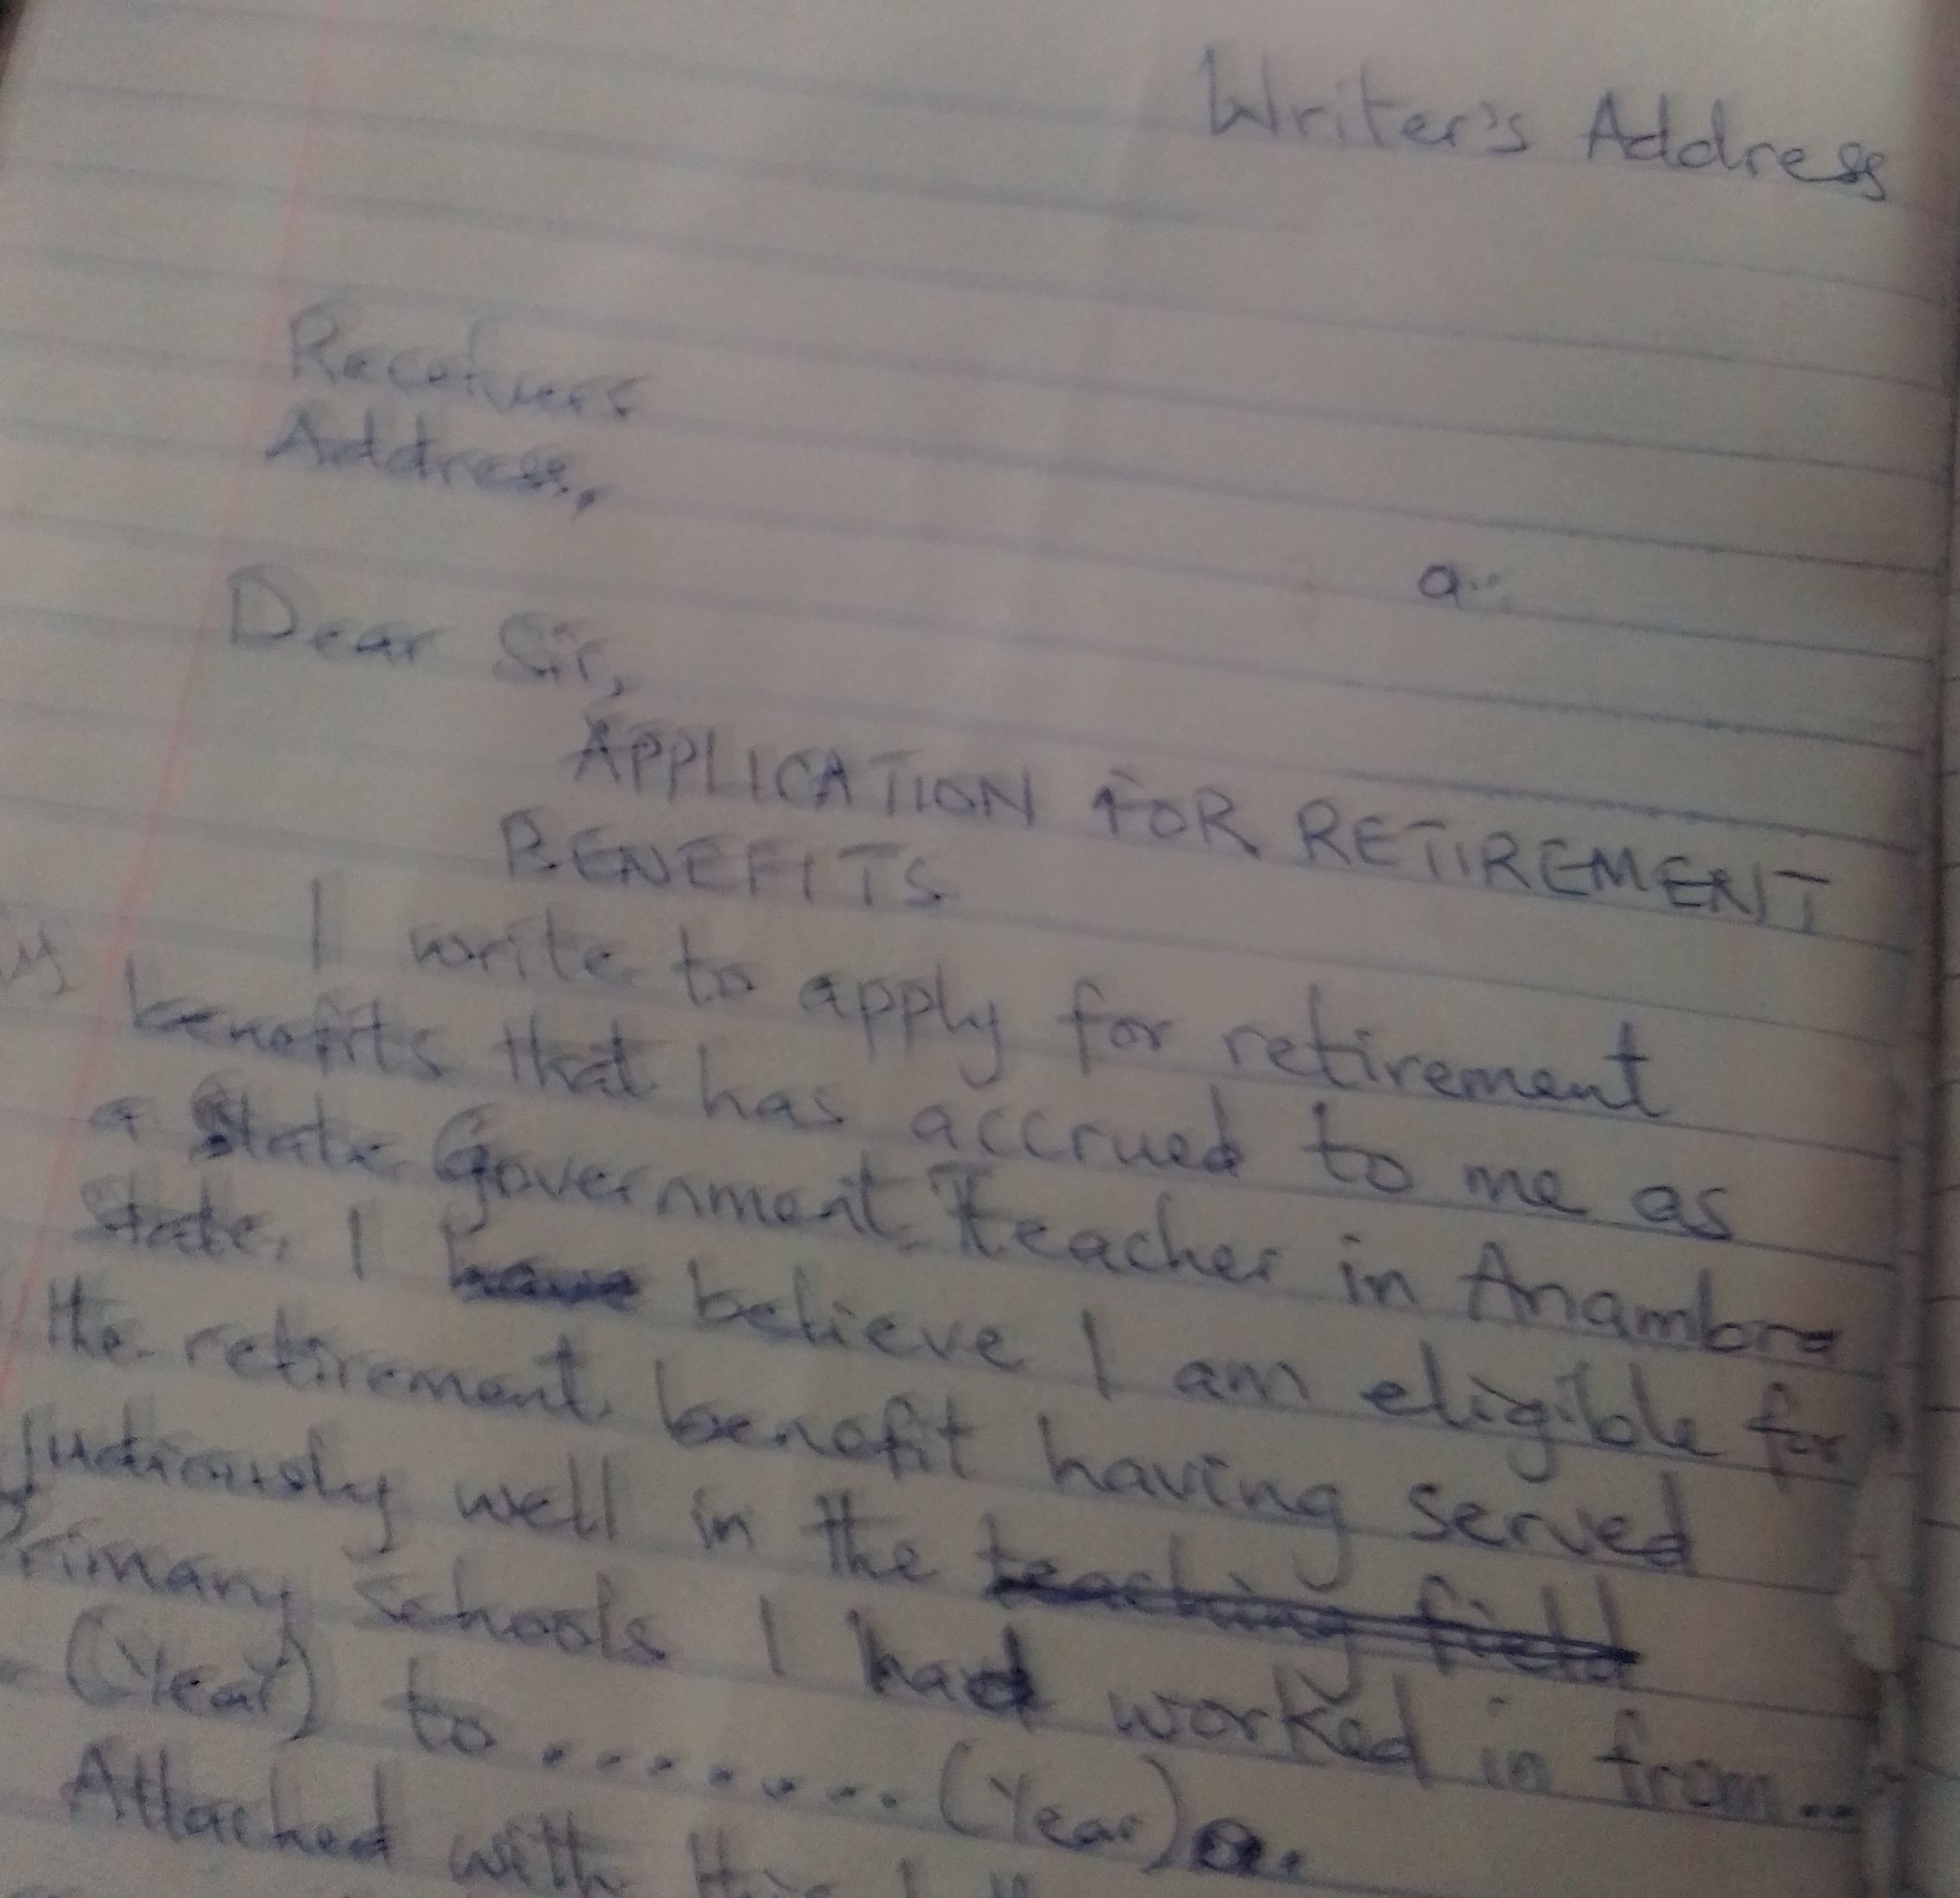 Writer's Address
Receivers
Address,
a..
Dear Sir,
APPLICATION FOR RETIREMENT
BENEFITS
I write to apply for retirement
benefits that has accrued to me as
a State Government Teacher in Anambra
State. I have believe I am eligible for
the retirement benefit having served
judiciously well in the teaching field
Primary Schools I had worked in from..
(Year) to ........(Year).
Attached with this